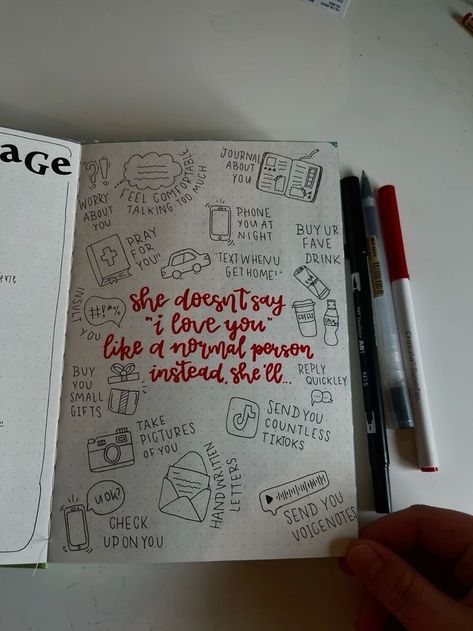 aGe
?!
WORRY
ABOUT
YOU
FEEL COMFORTABLE
TALKING TOO MUCH
JOURNAL
ABOUT
YOU
PHONE
YOU AT
NIGHT
BUY UR
FAVE
DRINK
PRAY
FOR
YOU"
"TEXT WHEN U
GET HOME!"
INSULT
YOU
#!%*
she doesn't say
"i love you"
like a normal person
instead, she'll...
COFFEE
BUY
YOU
SMALL
GIFTS
REPLY
QUICKLEY
TAKE
PICTURES
OF YOU
SEND YOU
COUNTLESS
TIKTOKS
HANDWRITTEN
LETTERS
u ok?
CHECK
UP ON YOU
SEND YOU
VOICENOTES